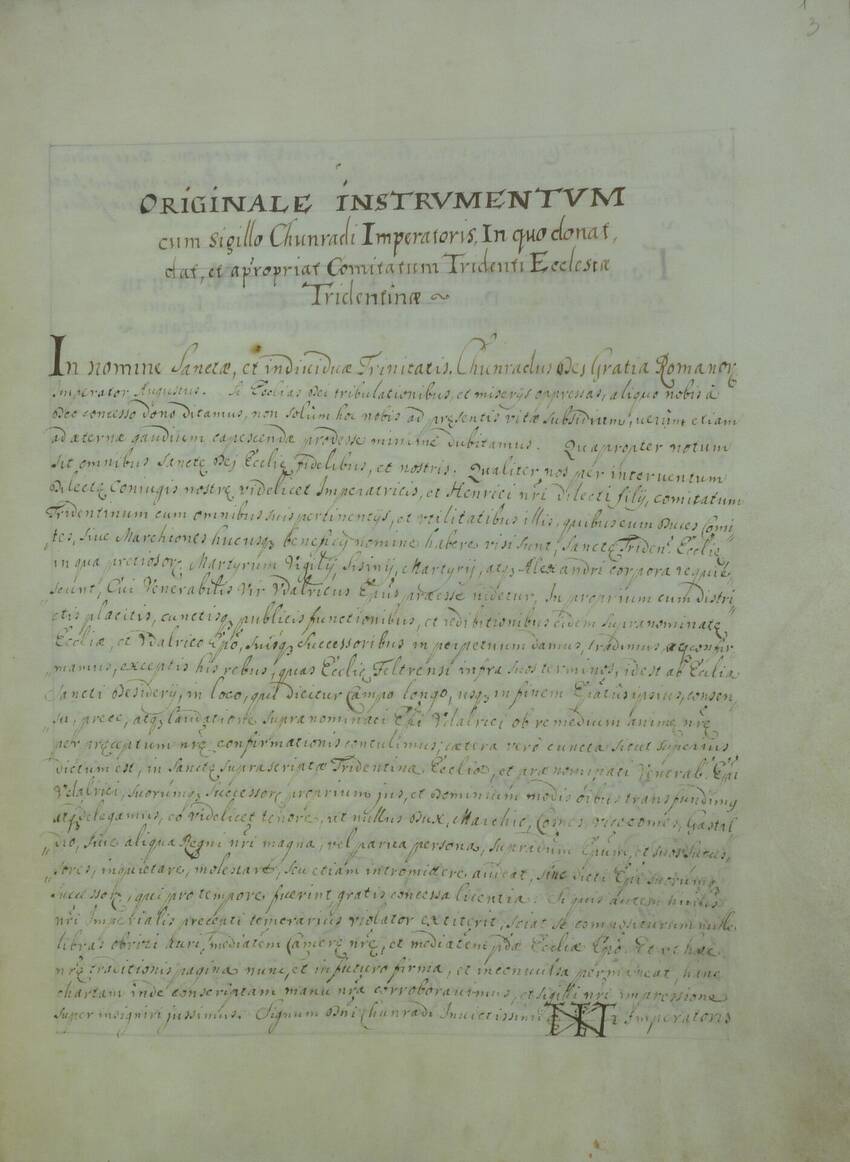 3
ORIGINALE INSTRVMENTVM
cum sigillo Chunradi Imperatoris, In quo donat,
dat, et apropriat Comitatum Tridenti Ecclesiæ
Tridentinæ ~
In nomine Sanctæ, et individuæ Trinitatis. Chunradus Dei Gratia Romanor.
Imperator Augustus. Si Ecclias Dei tribulationibus, et miserijs oppressas, aliquo nobis à
Deo concesso dono ditamus, non solùm hoc nobis ad pręsentis vitæ subsidium, uerùm etiam
ad æternæ gaudium capescendæ prodesse minimè dubitamus. Quapropter notum
sit omnibus Sanctę Dej Ecclię fidelibus, et nostris. Qualiter nos per interuentum
Dilectę Coniugis nostrę videlicet Imperatricis, et Henrici nri dilecti filij, comitatum
Tridentinum cum omnibus suis pertinentijs, et vtilitatibus illis, quibus eum Duces Comi„
„tes, siue Marchiones hucusq; beneficij nomine habere visi sunt, Sanctę Triden. Ecclię
in qua pretiosor. Martyrum Vigilij Sisinij, Martyrij, atq; Alexandri corpora requie„
scunt, Cui Venerabilis Vir Vdalricus Epus præesse videtur, In proprium cum distri„
„ctis placitis, cunctisq; publicis functionibus, et redibitionibus eidem supranominatę
Eccliæ, et Vdalrico Epo, suisq; successoribus in perpetuum damus, tradimus, atq; confir„
„mamus, exceptis his rebus, quas Ecclię Feltrensi infra suos terminos, idest ab Ecclia
Sancti Desiderij, in loco, qui dicitur Campo longo, usq; in finem Epatus ipsius, consen„
„su, prece, atq; laudatione supranominati Epi Vdalrici ob remedium animę nrę
per pręceptum nrę confirmationis contulimus; cætera verò cuncta sicut superius
dictum est, in Sanctę suprascriptæ Tridentina Ecclia, et prænominati Venerab. Epi
Vdalrici, suorumq; Successor. proprium jus, et Dominium modis oibus transfundimus
atq; delegamus, eo videlicet tenore, ut nullus Dux, Marchio, Comes, Vicecomes, Gastal„
„dio, siue aliqua Regni nri magna, vel parua persona, supradtum Epum, et suos succes„
„sores, inquietare, molestare, seu etiam intromidere audeat, sine dicti Epi suorumq;
successor. qui pro tempore fuerint gratis concessa licentia. Si quis autem huius
nri Imperialis precepti temerarius violator extiterit, sciat se compositurum mille
libras obrizi auri, mediatem Camerę nrę, et mediatem pdæ Eccliæ Epo. Et vt hæc
nrę traditionis pagina nunc, et in futuro firma, et inconuulsa permaneat hanc
chartam inde conscriptam manu nra corroborauimus, et sigilli nri impressione
super insigniri jussimus. Signum Dni Chunradi Inuictissimi Imperatoris